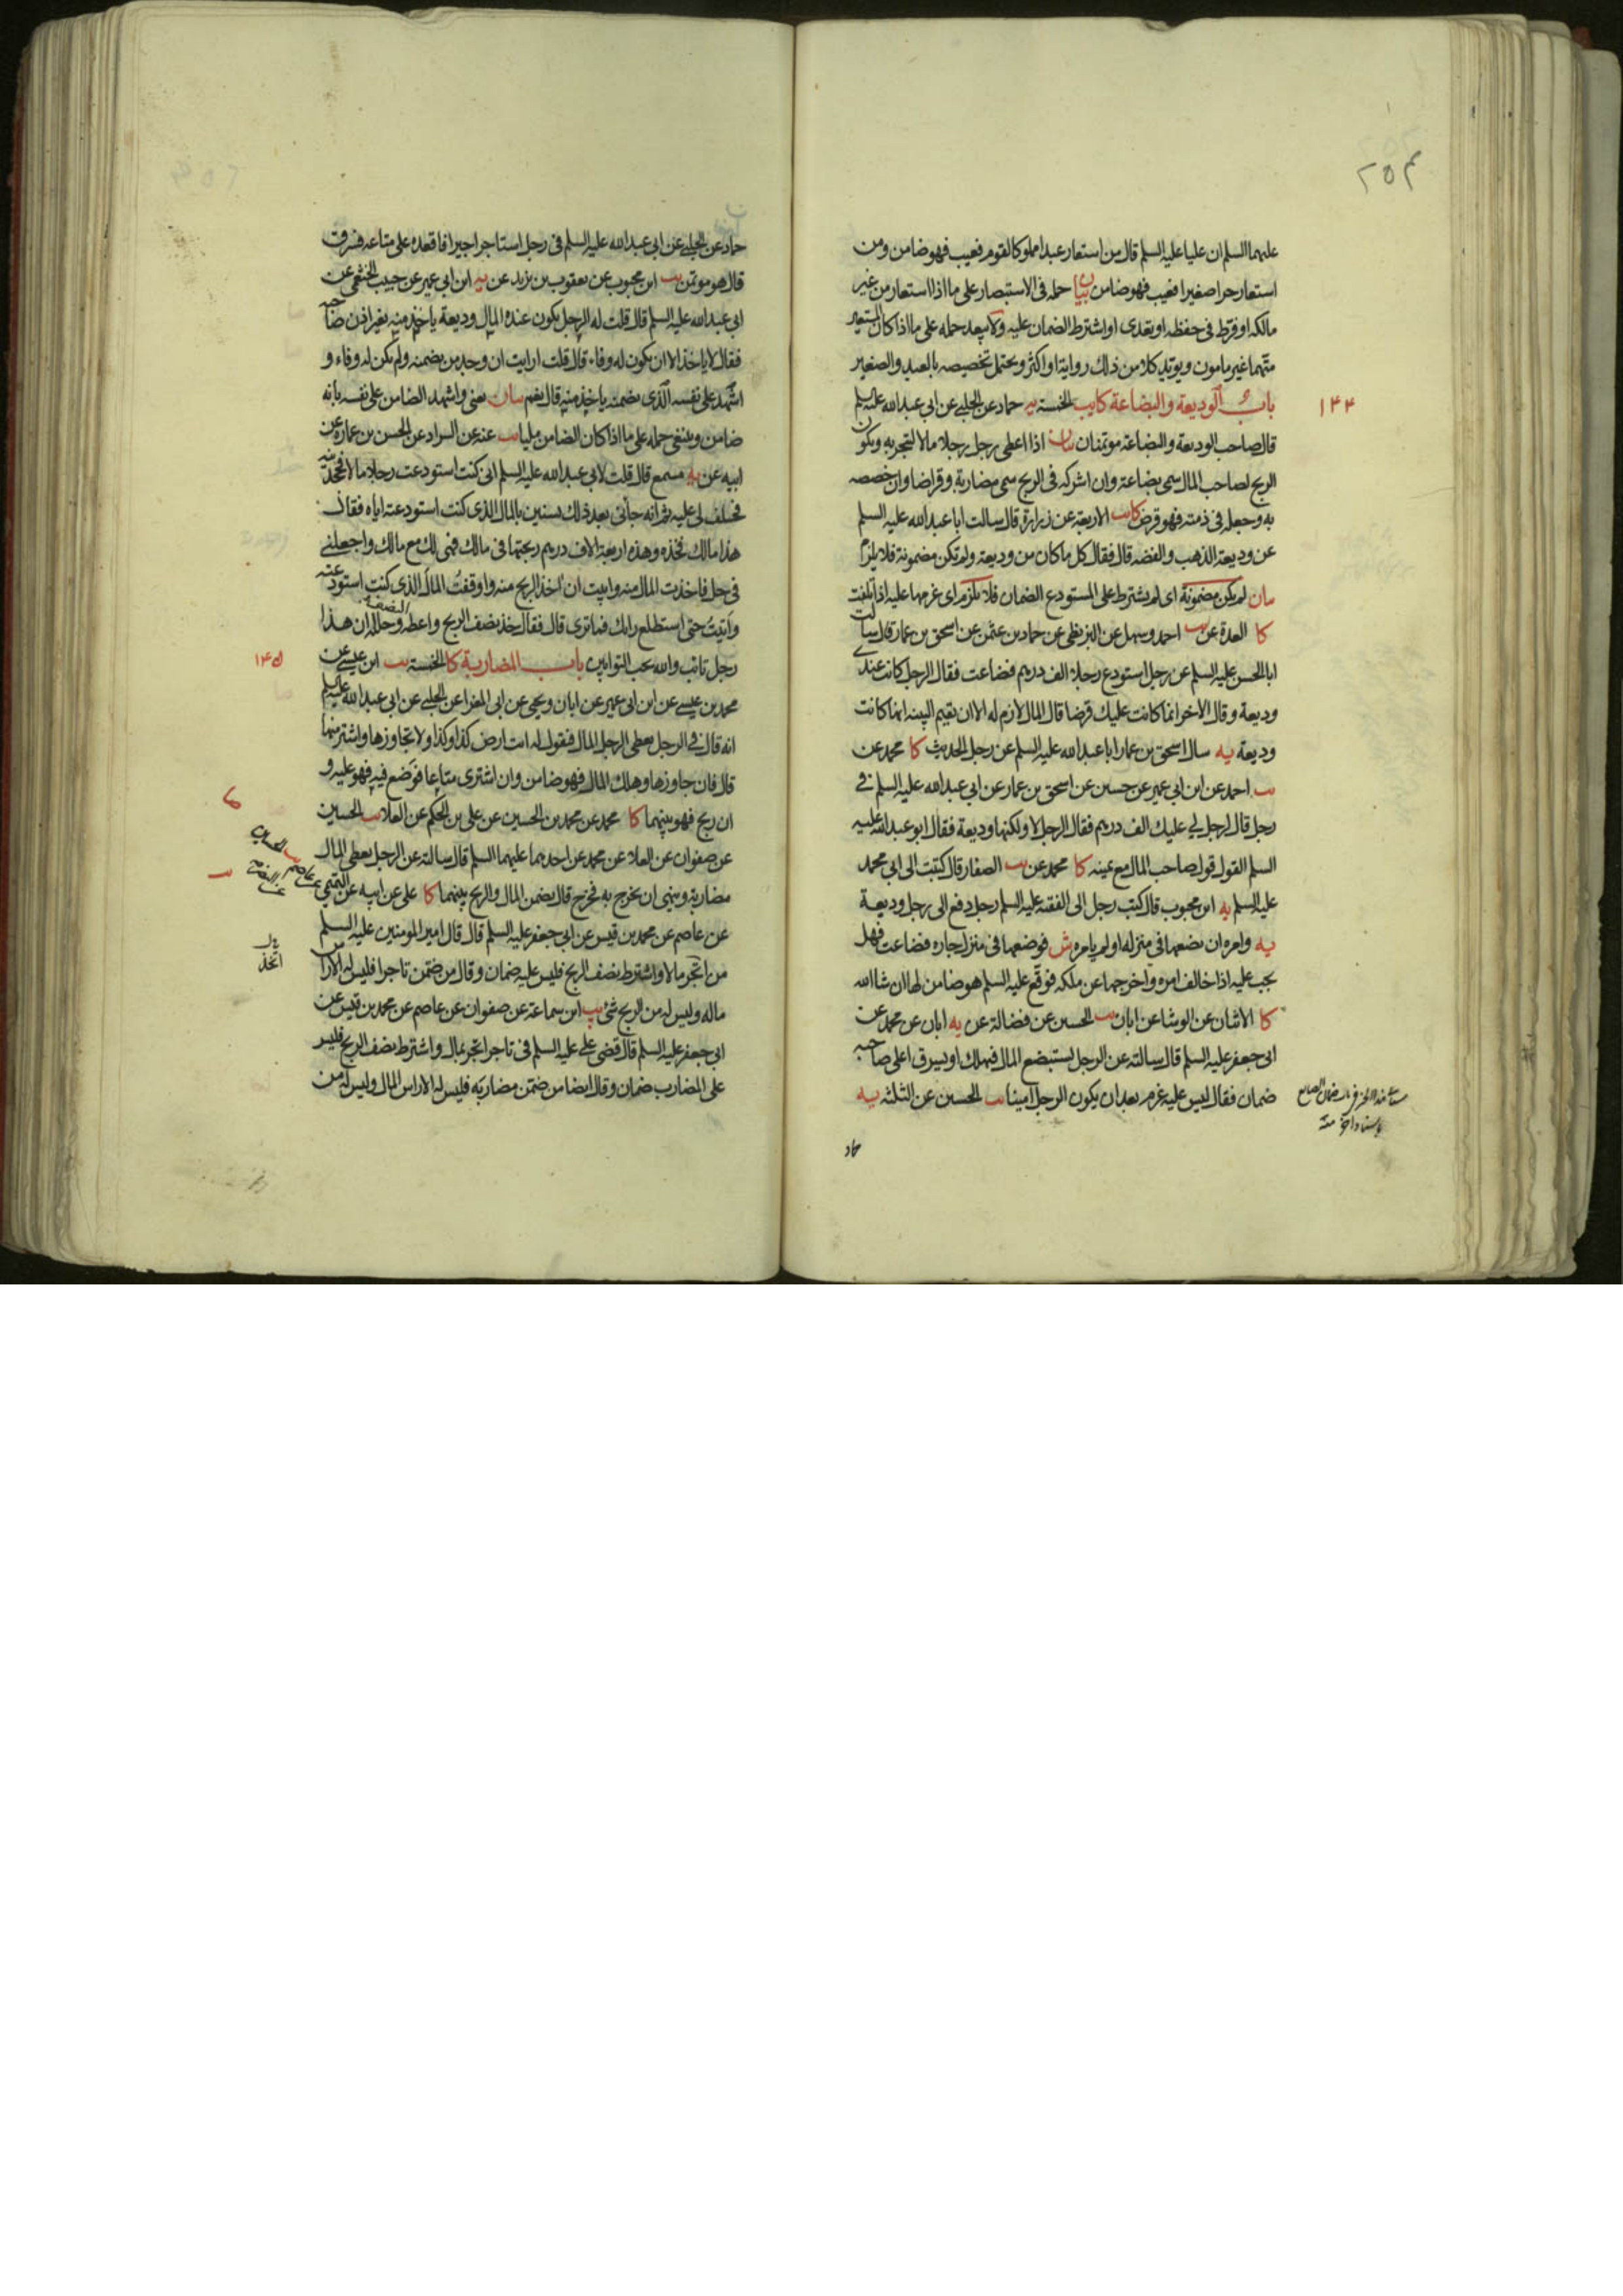 ٢٥٣
عليهما السلم ان عليا عليه السلم قال من استعار عبدا مملوكا لقوم فعيب فهو ضامن ومن
استعار حرا صغيرا فعيب فهو ضامن بيان حمله فى الاستبصار على ما اذا استعار من غير
مالكه او فرط فى حفظه او تعدى او اشترط الضمان عليه ولا يبعد حمله على ما اذا كان المستعير
متهما غير مامون ويؤيد كلا من ذلك رواية او اكثر ويحتمل تخصيصه بالعبد والصغير
١٤٤
باب الوديعة والبضاعة كا يب الخمسة يه حماد عن الحلبي عن ابى عبد الله عليه السلم
قال صاحب الوديعة والبضاعة موتمنان بيان اذا اعطى رجل رجلا مالا ليتجر به ويكون
الربح لصاحب المال سمى بضاعة وان اشركه فى الربح سمى مضاربة وقراضا وان خصصه
به وجعله فى ذمته فهو قرض كا يب الاربعة عن زرارة قال سالت ابا عبد الله عليه السلم
عن وديعة الذهب والفضه قال فقال كل ما كان من وديعة ولم تكن مضمونة فلا يلزم
بيان لم يكن مضمونة اى لم يشترط على المستودع الضمان فلا يلزم اى غرمها عليه اذا تلفت
كا العدة عن يب احمد وسهل عن البزنطى عن حماد بن عثمن عن اسحق بن عمار قال سالت
ابا الحسن عليه السلم عن رجل استودع رجلا الف درهم فضاعت فقال الرجل كانت عندي
وديعة وقال الاخر انما كانت عليك قرضا قال المال لازم له الا ان يقيم البينه انما كانت
وديعة يه سال اسحق بن عمار ابا عبد الله عليه السلم عن رجل الحديث كا محمد عن
يب احمد عن ابن ابي عمير عن حسين عن اسحق بن عمار عن ابي عبد الله عليه السلم في
رجل قال لرجل لي عليك الف درهم فقال الرجل لا ولكنها وديعة فقال ابو عبد الله عليه
السلم القول قول صاحب المال مع يمينه كا محمد عن يب الصفار قال كتبت الى ابي محمد
عليه السلم يه ابن محبوب قال كتب رجل الى الفقيه عليه السلم رجل دفع الى رجل وديعة
يه وامره ان يضعها في منزله او لم يامره ش فوضعها فى منزل جاره فضاعت فهل
يجب عليه اذا خالف امره واخرجها عن ملكه فوقع عليه السلم هو ضامن لها ان شا الله
كا الاثنان عن الوشا عن ابان يب الحسين عن فضالة عن يه ابان عن محمد عن
ابى جعفر عليه السلم قال سالته عن الرجل يستبضع المال فيهلك او يسرق اعلى صاحبه
ضمان فقال ليس عليه غرم بعد ان يكون الرجل امينا يب الحسين عن الثلثه يه
حماد
حماد عن الحلبي عن ابى عبد الله عليه السلم فى رجل استاجر اجيرا فاقعده على متاعه فسرق
قال هو موتمن يب ابن محبوب عن يعقوب بن يزيد عن يه ابن ابى عمير عن حبيب الخثعمى عن
ابى عبد الله عليه السلم قال قلت له الرجل يكون عنده المال وديعة ياخذ منه بغير اذن صاحبه
فقال لا ياخذ الا ان يكون له وفاء قال قلت ارايت ان وجد من يضمنه ولم يكن له وفاء و
اشهد على نفسه الذى يضمنه ياخذ منه قال نعم بيان يعنى واشهد الضامن على نفسه بانه
ضامن وينبغى حمله على ما اذا كان الضامن مليا يب عنه عن السراد عن الحسن بن عمارة عن
ابيه عن يه مسمع قال قلت لابى عبد الله عليه السلم انى كنت استودعت رجلا مالا فجحدنيه
فحلف لى عليه ثم انه جأنى بعد ذلك بسنين بالمال الذى كنت استودعته اياه فقال
هذا مالك فخذه وهذه اربعة الاف درهم ربحتها فى مالك فهى لك مع مالك واجعلنى
فى حل فاخذت المال منه وابيت ان اخذ الربح منه واوقفت المال الذى كنت استودعته
واتيت حتى استطلع رايك فما ترى قال فقال خذ نصف الربح واعطه النصف وحلله ان هذا
رجل تائب والله يحب التوابين باب المضاربة كا الخمسة يب ابن عيسى عن
١٤٥
محمد بن عيسى عن ابن ابى عمير عن ابان ويحيى عن ابى المغرا عن الحلبى عن ابى عبد الله عليه السلم
انه قال فى الرجل يعطى الرجل المال فيقول له ائت ارض كذا وكذا ولا تجاوزها واشتر منها
قال فان جاوزها وهلك المال فهو ضامن وان اشترى متاعا فوضع فيه فهو عليه و
ان ربح فهو بينهما كا محمد عن محمد بن الحسين عن على بن الحكم عن العلا يب الحسين
عن صفوان عن العلا عن محمد عن احدهما عليهما السلم قال سالته عن الرجل يعطى المال
مضاربة وينهى ان يخرج به فخرج قال يضمن المال والربح بينهما كا على عن ابيه عن التميمى
عن عاصم يب الحسين
عن النضر
عن عاصم عن محمد بن قيس عن ابى جعفر عليه السلم قال قال امير المومنين عليه السلم
من اتجر مالا واشترط نصف الربح فليس عليه ضمان وقال من ضمن تاجرا فليس له الا راس
ماله وليس له من الربح شئ يب ابن سماعة عن صفوان عن عاصم عن محمد بن قيس عن
ابى جعفر عليه السلم قال قضى على عليه السلم فى تاجر اتجر بمال واشترط نصف الربح فليس
على المضارب ضمان وقال ايضا من ضمن مضاربه فليس له الا راس المال وليس له من